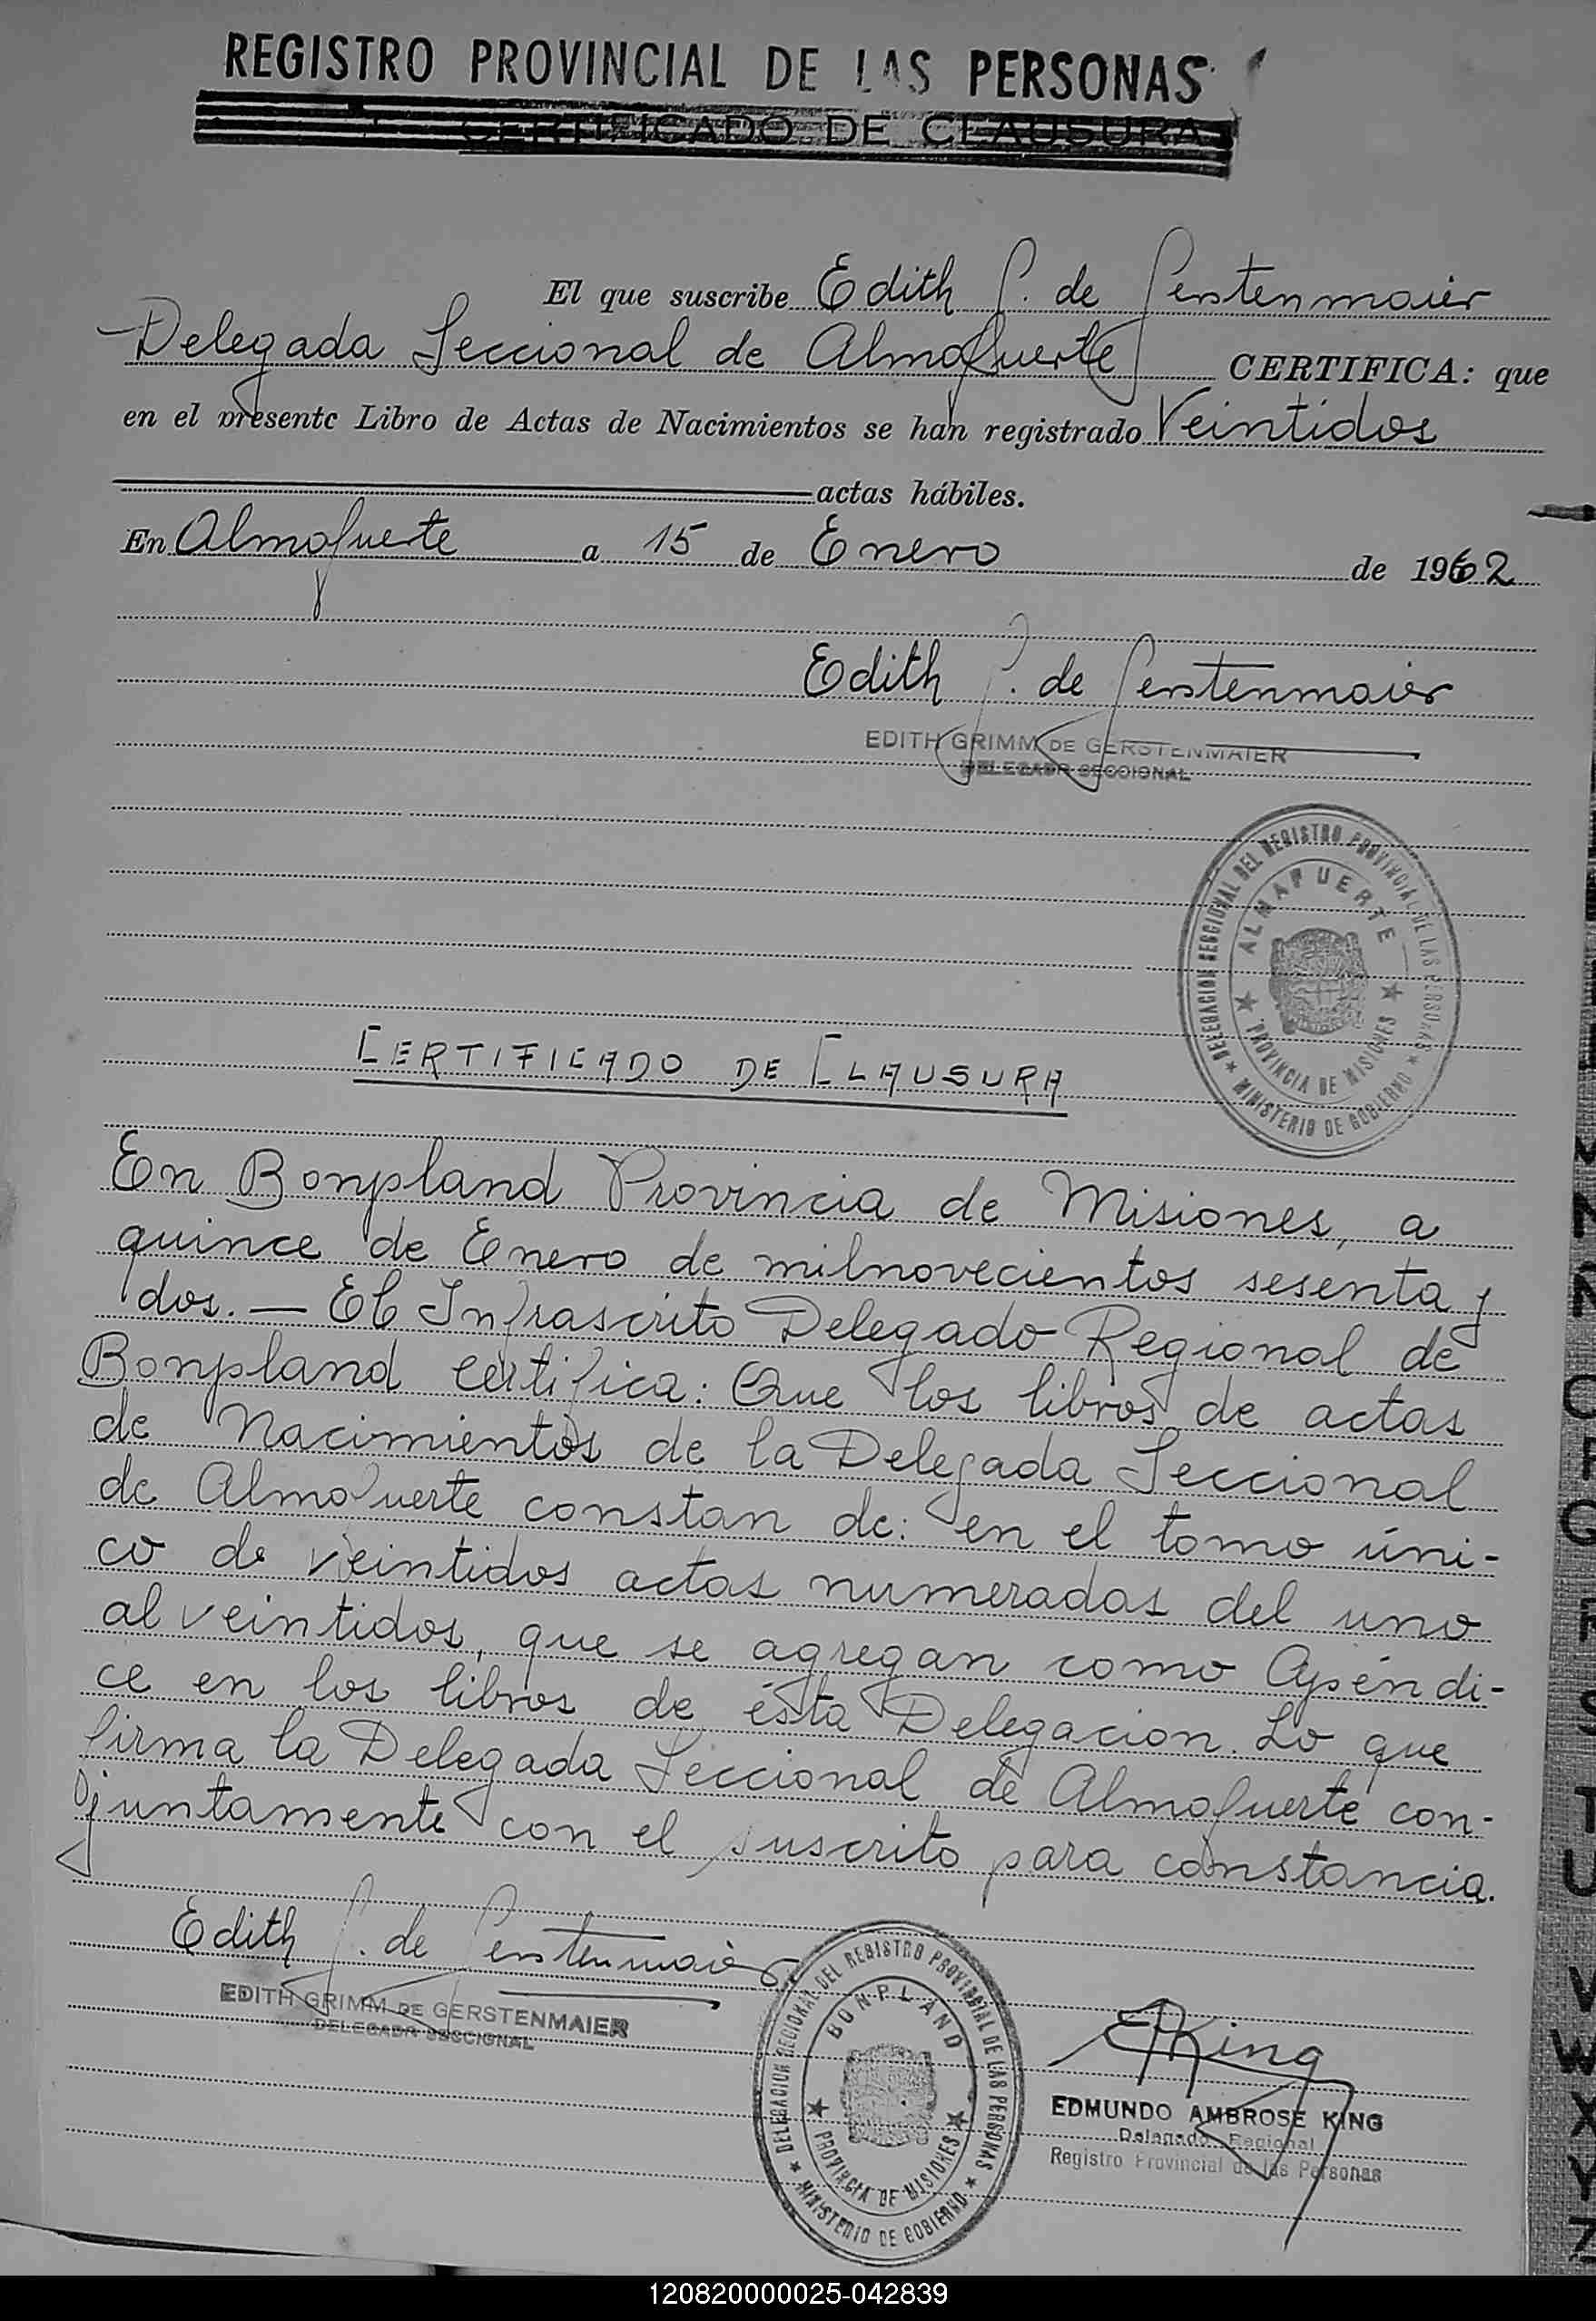 REGISTRO PROVINCIAL DE LAS PERSONAS
CERTIFICADO DE CLAUSURA
El que suscribe Edith G. de Gerstenmaier
Delegada Seccional de Almafuerte CERTIFICA: que
en el presente Libro de Actas de Nacimientos se han registrado Veintidos
actas hábiles.
En Almafuerte a 15 de Enero de 1962
Edith G. de Gerstenmaier
EDITH GRIMM DE GERSTENMAIER
DELEGADA SECCIONAL
DELEGACION SECCIONAL DEL REGISTRO PROVINCIAL DE LAS PERSONAS
★ MINISTERIO DE GOBIERNO ★
ALMAFUERTE
★ PROVINCIA DE MISIONES ★
CERTIFICADO DE CLAUSURA
En Bonpland Provincia de Misiones, a
quince de Enero de milnovecientos sesenta y
dos. — El Infrascrito Delegado Regional de
Bonpland certifica: Que los libros de actas
de Nacimientos de la Delegada Seccional
de Almafuerte constan de: en el tomo úni-
co de veintidos actas numeradas del uno
al veintidos, que se agregan como Apéndi-
ce en los libros de ésta Delegacion. Lo que
firma la Delegada Seccional de Almafuerte con-
juntamente con el suscrito para constancia.
Edith G. de Gerstenmaier
EDITH GRIMM DE GERSTENMAIER
DELEGADA SECCIONAL
DELEGACION REGIONAL DEL REGISTRO PROVINCIAL DE LAS PERSONAS
★ MINISTERIO DE GOBIERNO ★
BONPLAND
★ PROVINCIA DE MISIONES ★
EAKing
EDMUNDO AMBROSE KING
Delegado Regional
Registro Provincial de las Personas
120820000025-042839